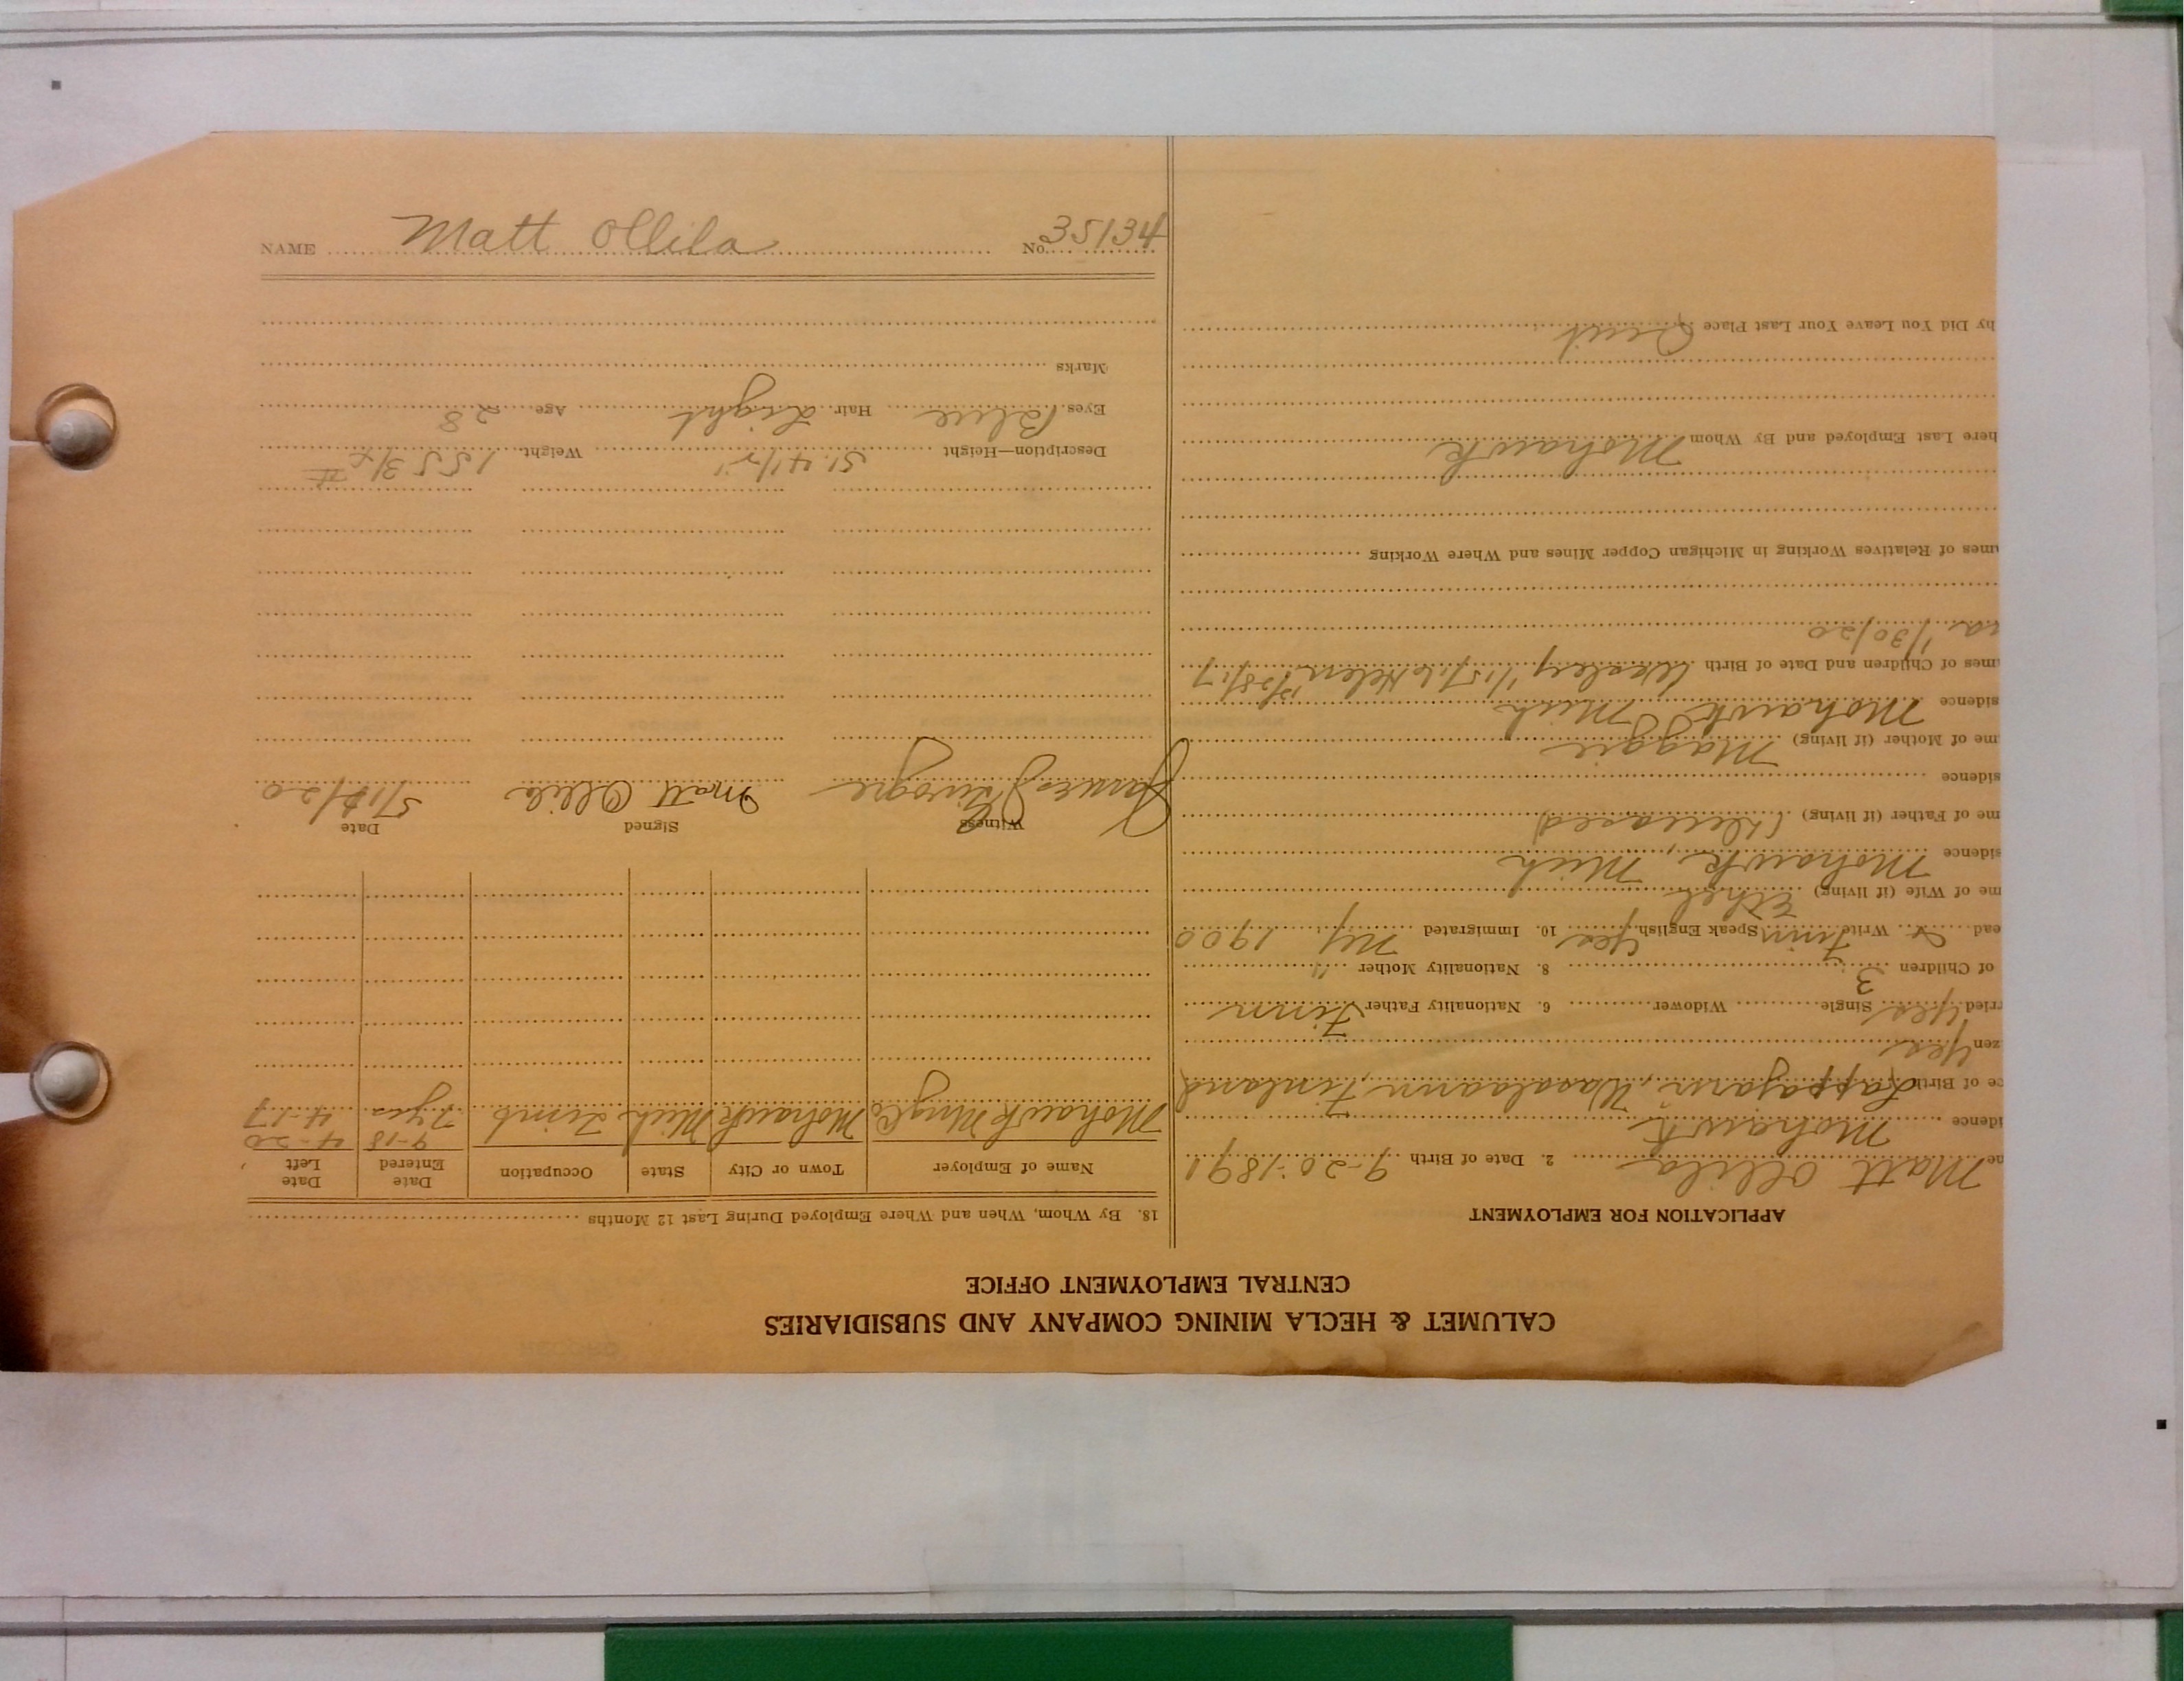 CALUMET & HECLA MINING COMPANY AND SUBSIDIARIES
CENTRAL EMPLOYMENT OFFICE
APPLICATION FOR EMPLOYMENT
me Matt Ollila 2. Date of Birth 9-20-1891
idence Mohawk
ce of Birth Lappajarvi, Wasalaani, Finland
zen yes
rried yes Single Widower 6. Nationality Father Finn
of Children 3 8. Nationality Mother "
ead & Write Finn Speak English yes 10. Immigrated NY 1900
me of Wife (if living) Ethel
sidence Mohawk, Mich
me of Father (if living) (deceased)
sidence
me of Mother (if living) Maggie
sidence Mohawk Mich
mes of Children and Date of Birth 1/15/16 Helen 12/28/17
1/30/20
mes of Relatives Working in Michigan Copper Mines and Where Working
here Last Employed and By Whom Mohawk
hy Did You Leave Your Last Place Quit
18. By Whom, When and Where Employed During Last 12 Months
Name of Employer Town or City State Occupation Date Entered Date Left
9-18 4-20
Mohawk Mng Co Mohawk Mich Timb 7 yrs 4-17
Witness Signed Date
James Matt Ollila 5/ /20
Description—Height 5' 4 1/2" Weight 155 3/4 #
Eyes Blue Hair Light Age 28
Marks
NAME Matt Ollila No. 35134